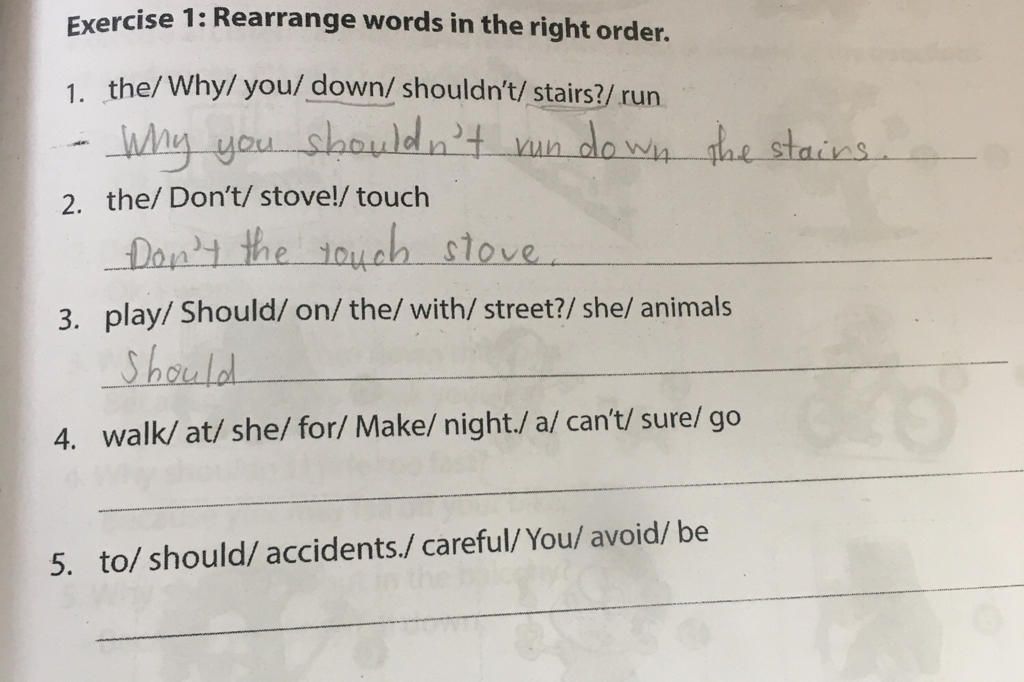 Exercise 1: Rearrange words in the right order.
1. the/ Why/ you/ down/ shouldn't/ stairs?/ run
- Why you shouldn't run down the stairs.
2. the/ Don't/ stove!/ touch
Don't the touch stove.
3. play/ Should/ on/ the/ with/ street?/ she/ animals
Should
4. walk/ at/ she/ for/ Make/ night./ a/ can't/ sure/ go
5. to/ should/ accidents./ careful/ You/ avoid/ be